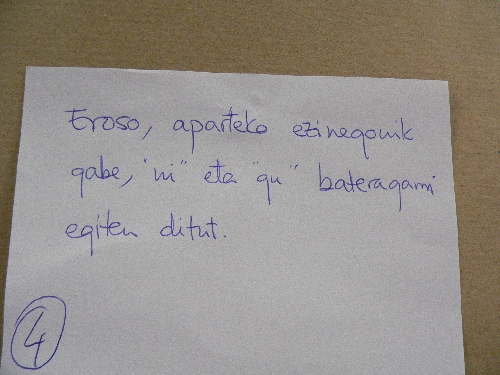 Eroso, aparteko ezinegonik
gabe, "ni" eta "gu" bateragarri
egiten ditut.
4